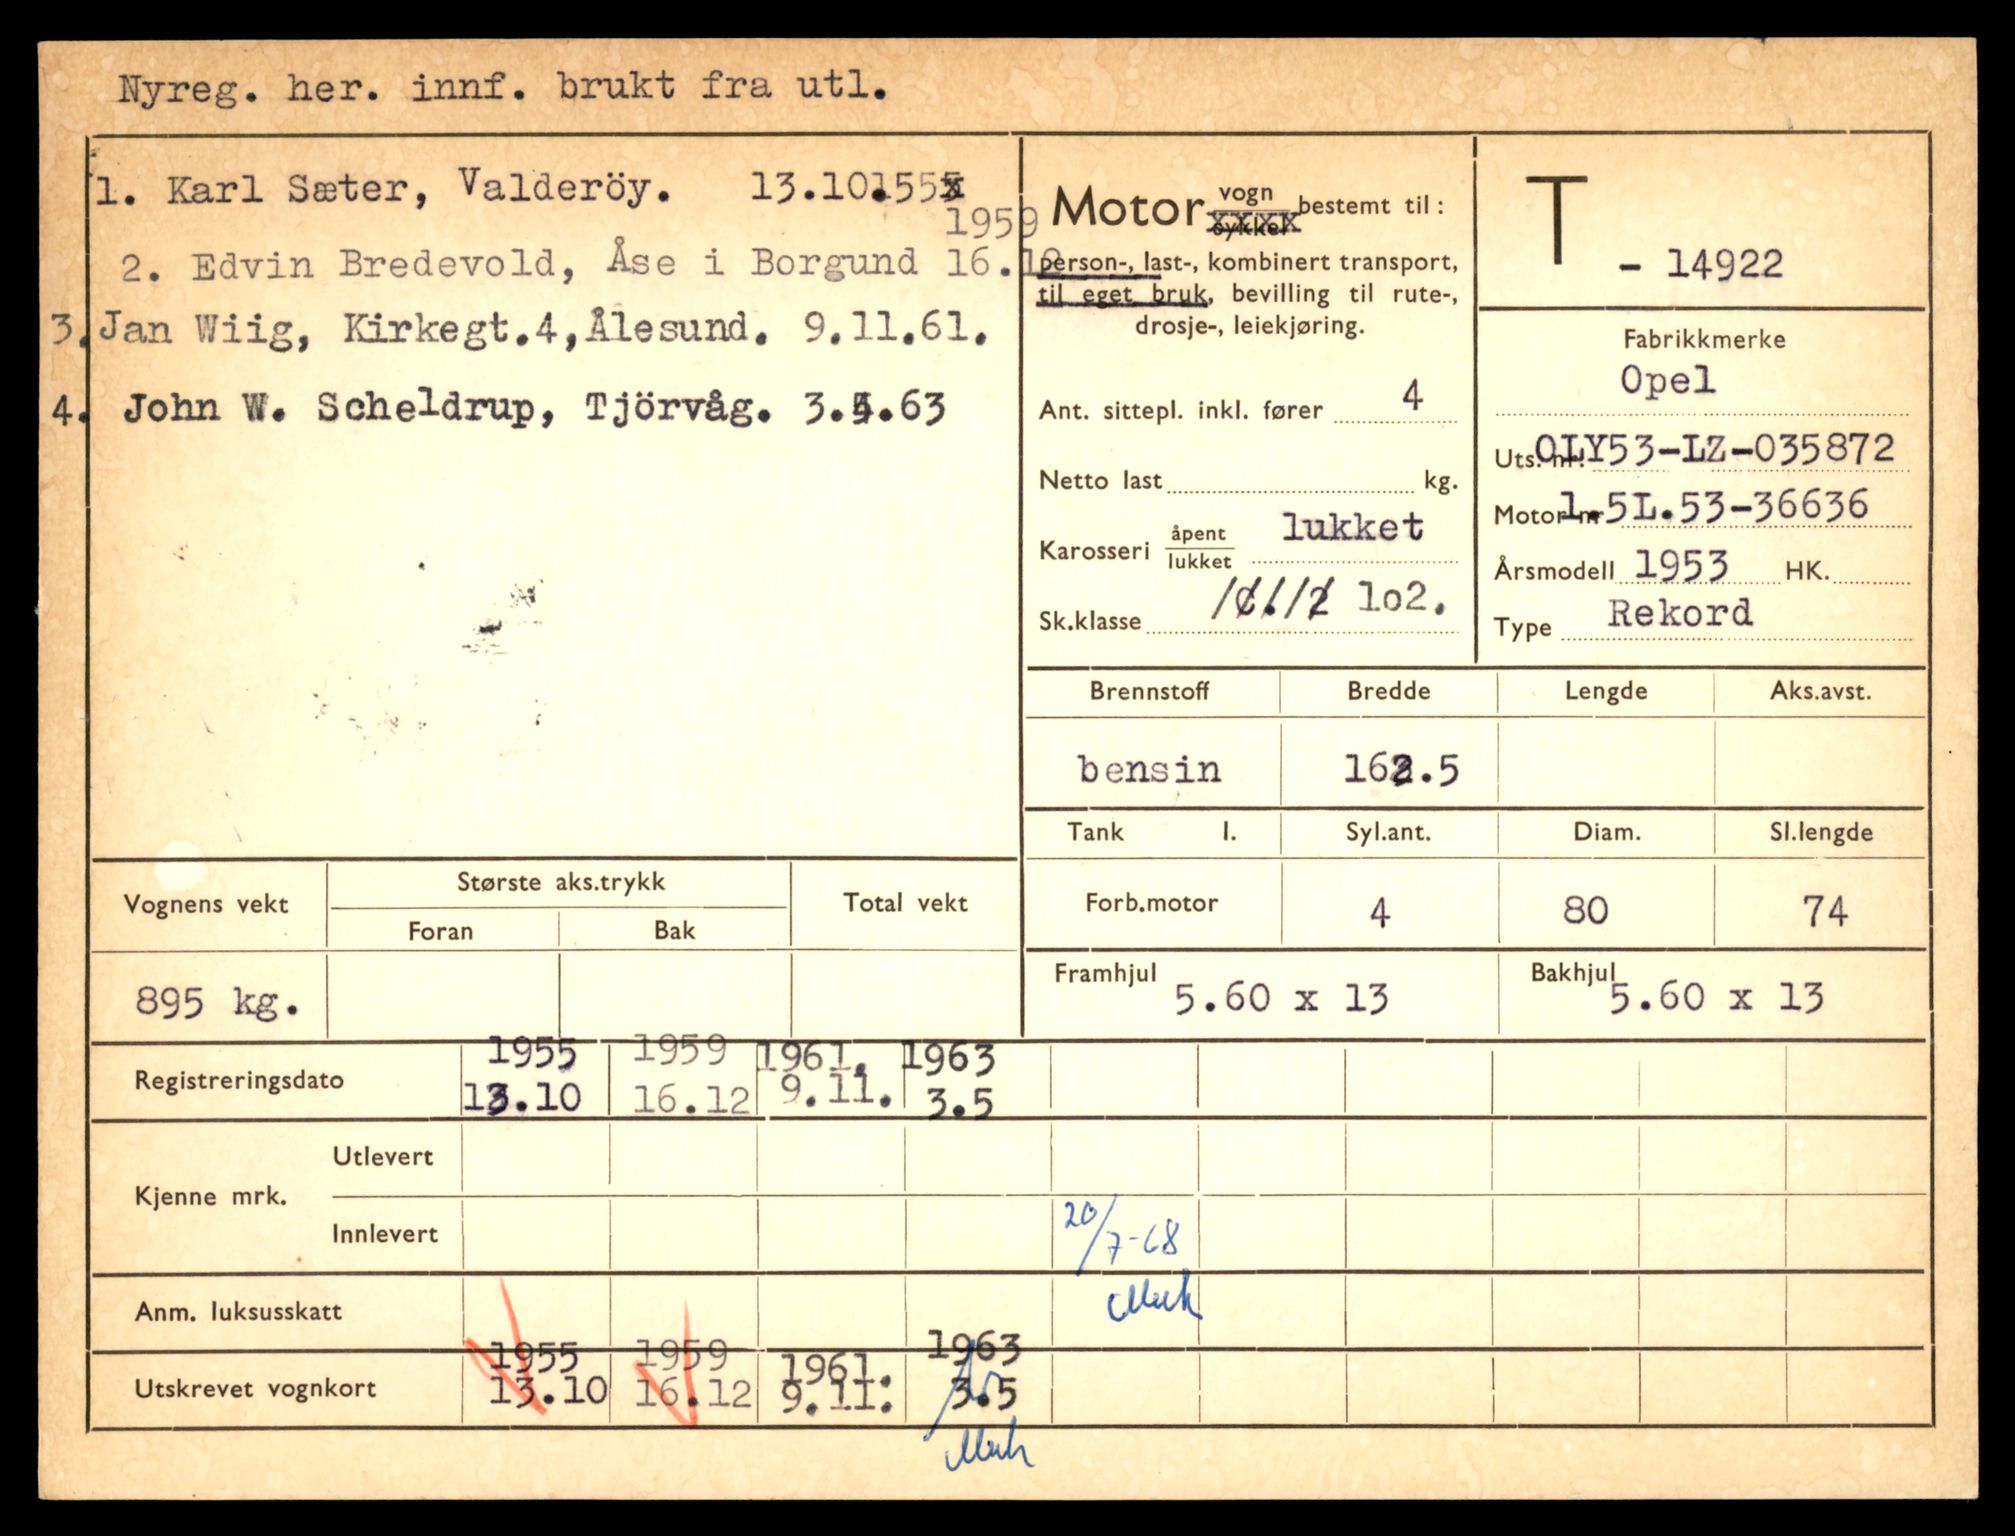 Nyreg. her. innf. brukt fra utl.
1. Karl Sæter, Valderöy. 13.10.55
2. Edvin Bredevold, Åse i Borgund 16.12
1959
3. Jan Wiig, Kirkegt.4, Ålesund. 9.11.61.
4. John W. Scheldrup, Tjörvåg. 3.5.63
Motor vogn bestemt til:
sykkel
person-, last-, kombinert transport,
til eget bruk, bevilling til rute-,
drosje-, leiekjøring.
Ant. sittepl. inkl. fører 4
Netto last kg.
Karosseri åpent lukket
lukket
Sk.klasse 1o2.
T - 14922
Fabrikkmerke
Opel
Uts. nr. OLY53-LZ-035872
Motor nr 1.5L.53-36636
Årsmodell 1953 HK.
Type Rekord
Brennstoff Bredde Lengde Aks.avst.
bensin 162.5
Tank l. Syl.ant. Diam. Sl.lengde
Forb.motor 4 80 74
Framhjul 5.60 x 13 Bakhjul 5.60 x 13
Vognens vekt Største aks.trykk Total vekt
Foran Bak
895 kg.
1955 1959 1961. 1963
Registreringsdato 13.10 16.12 9.11. 3.5
Utlevert
Kjenne mrk.
Innlevert 20/7-68
Anm. luksusskatt
1955 1959 1961. 1963
Utskrevet vognkort 13.10 16.12 9.11. 3.5